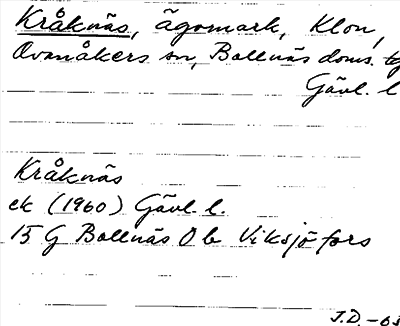 Kråknäs, ägomark, Klon,
Ovanåkers sn, Bollnäs doms. tg
Gävl. l
Kråknäs
ek (1960) Gävl. l.
15 G Bollnäs O b Viksjöfors
J.D. -63